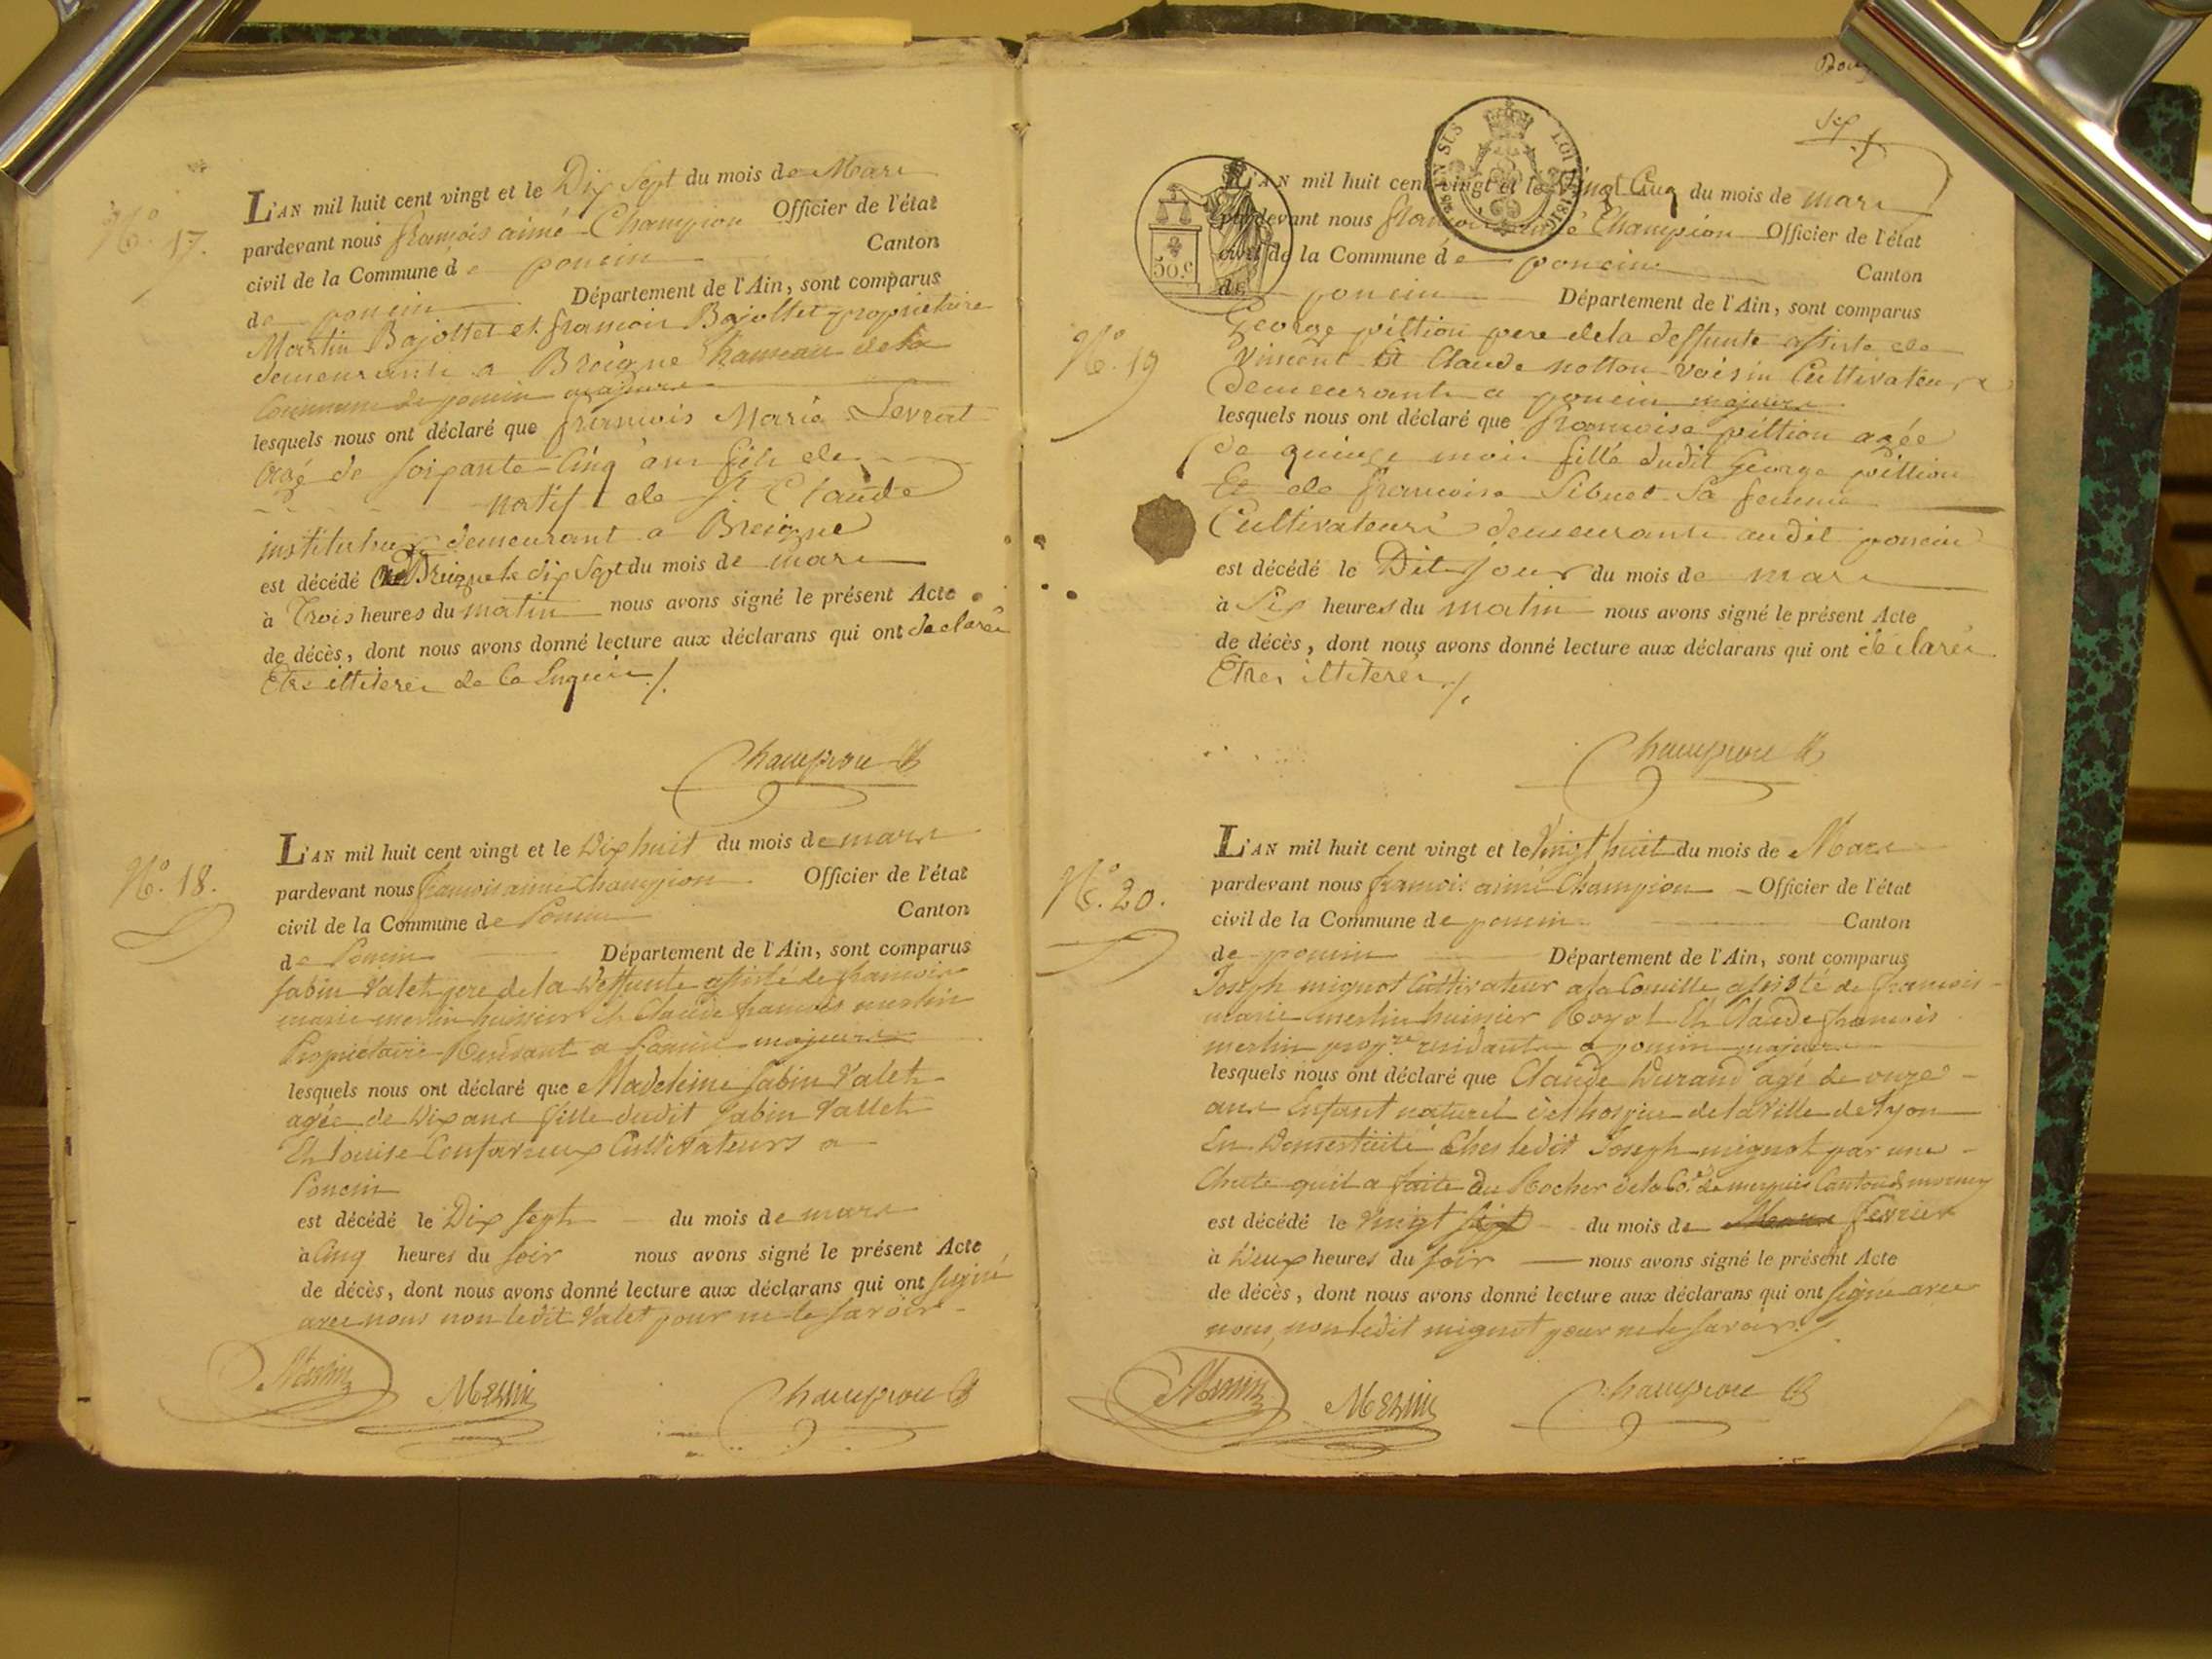 N.º 17.
L'AN mil huit cent vingt et le Dix Sept du mois de Mars
pardevant nous françois aimé Champion Officier de l'état
civil de la Commune de poncin Canton
de poncin Département de l'Ain, sont comparus
Martin Bajollet et françois Bajollet propriétaire
demeurants a Breigne hameau de la
Commune de poncin majeurs
lesquels nous ont déclaré que françois Marie Levrat
agé de soixante Cinq ans fils de
natif de St. Claude
instituteur demeurant a Breigne
est décédé a Breigne le dix Sept du mois de mars
à Trois heures du matin nous avons signé le présent Acte
de décès, dont nous avons donné lecture aux déclarans qui ont declarés
Etre illiterés de Ce Enquis ./.
Champion
N.º 18.
L'AN mil huit cent vingt et le Dix huit du mois de mars
pardevant nous françois aimé Champion Officier de l'état
civil de la Commune de Poncin Canton
de Poncin Département de l'Ain, sont comparus
fabin Valet pere de la Deffunte assisté de françois
marie merlin huissier Et Claude françois merlin
Propriétaire Residant a Poncin majeurs
lesquels nous ont déclaré que Madeleine fabin Valet
agée de Dix ans fille dudit fabin Vallet
Et Louise Confavreux Cultivateurs a
Poncin
est décédé le Dix sept du mois de mars
à Cinq heures du soir nous avons signé le présent Acte
de décès, dont nous avons donné lecture aux déclarans qui ont signé
avec nous non ledit Valet pour ne le savoir
Merlin Merlin Champion
Sept
50 c
N.º 19
L'AN mil huit cent vingt et le Vingt Cinq du mois de mars
pardevant nous françois aimé Champion Officier de l'état
civil de la Commune de poncin Canton
de poncin Département de l'Ain, sont comparus
George pittion pere de la deffunte assisté de
Vincent Et Claude notton voisin Cultivateurs
Demeurants a poncin majeurs
lesquels nous ont déclaré que françoise pittion agée
de quinze mois fille dudit George pittion
Et de françoise Sibuet Sa femme
Cultivateurs demeurants audit poncin
est décédé le Dit jour du mois de mars
à Six heures du matin nous avons signé le présent Acte
de décès, dont nous avons donné lecture aux déclarans qui ont déclarés
Etres illiterés ./.
Champion
N.º 20.
L'AN mil huit cent vingt et le Vingt huit du mois de Mars
pardevant nous françois aimé Champion Officier de l'état
civil de la Commune de poncin Canton
de poncin Département de l'Ain, sont comparus
Joseph mignot Cultivateur a la Couille assisté de françois
marie merlin huissier Royal Et Claude françois
merlin propre residants a poncin majeurs
lesquels nous ont déclaré que Claude Durand agé de onze
ans Enfant naturel de l'hospice de la Ville de Lyon
En Domesticité Chez ledit Joseph mignot par une
Chute qu'il a faite du Rocher de la Co.
est décédé le Vingt sept du mois de Mars fevrier
à Deux heures du soir nous avons signé le présent Acte
de décès, dont nous avons donné lecture aux déclarans qui ont signé avec
nous, non ledit mignot pour ne le savoir ./.
Merlin Merlin Champion